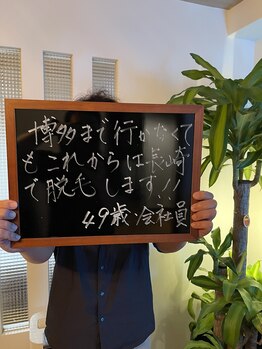 博多まで行かなくて
もこれからは長崎
で脱毛します!!
49歳・会社員